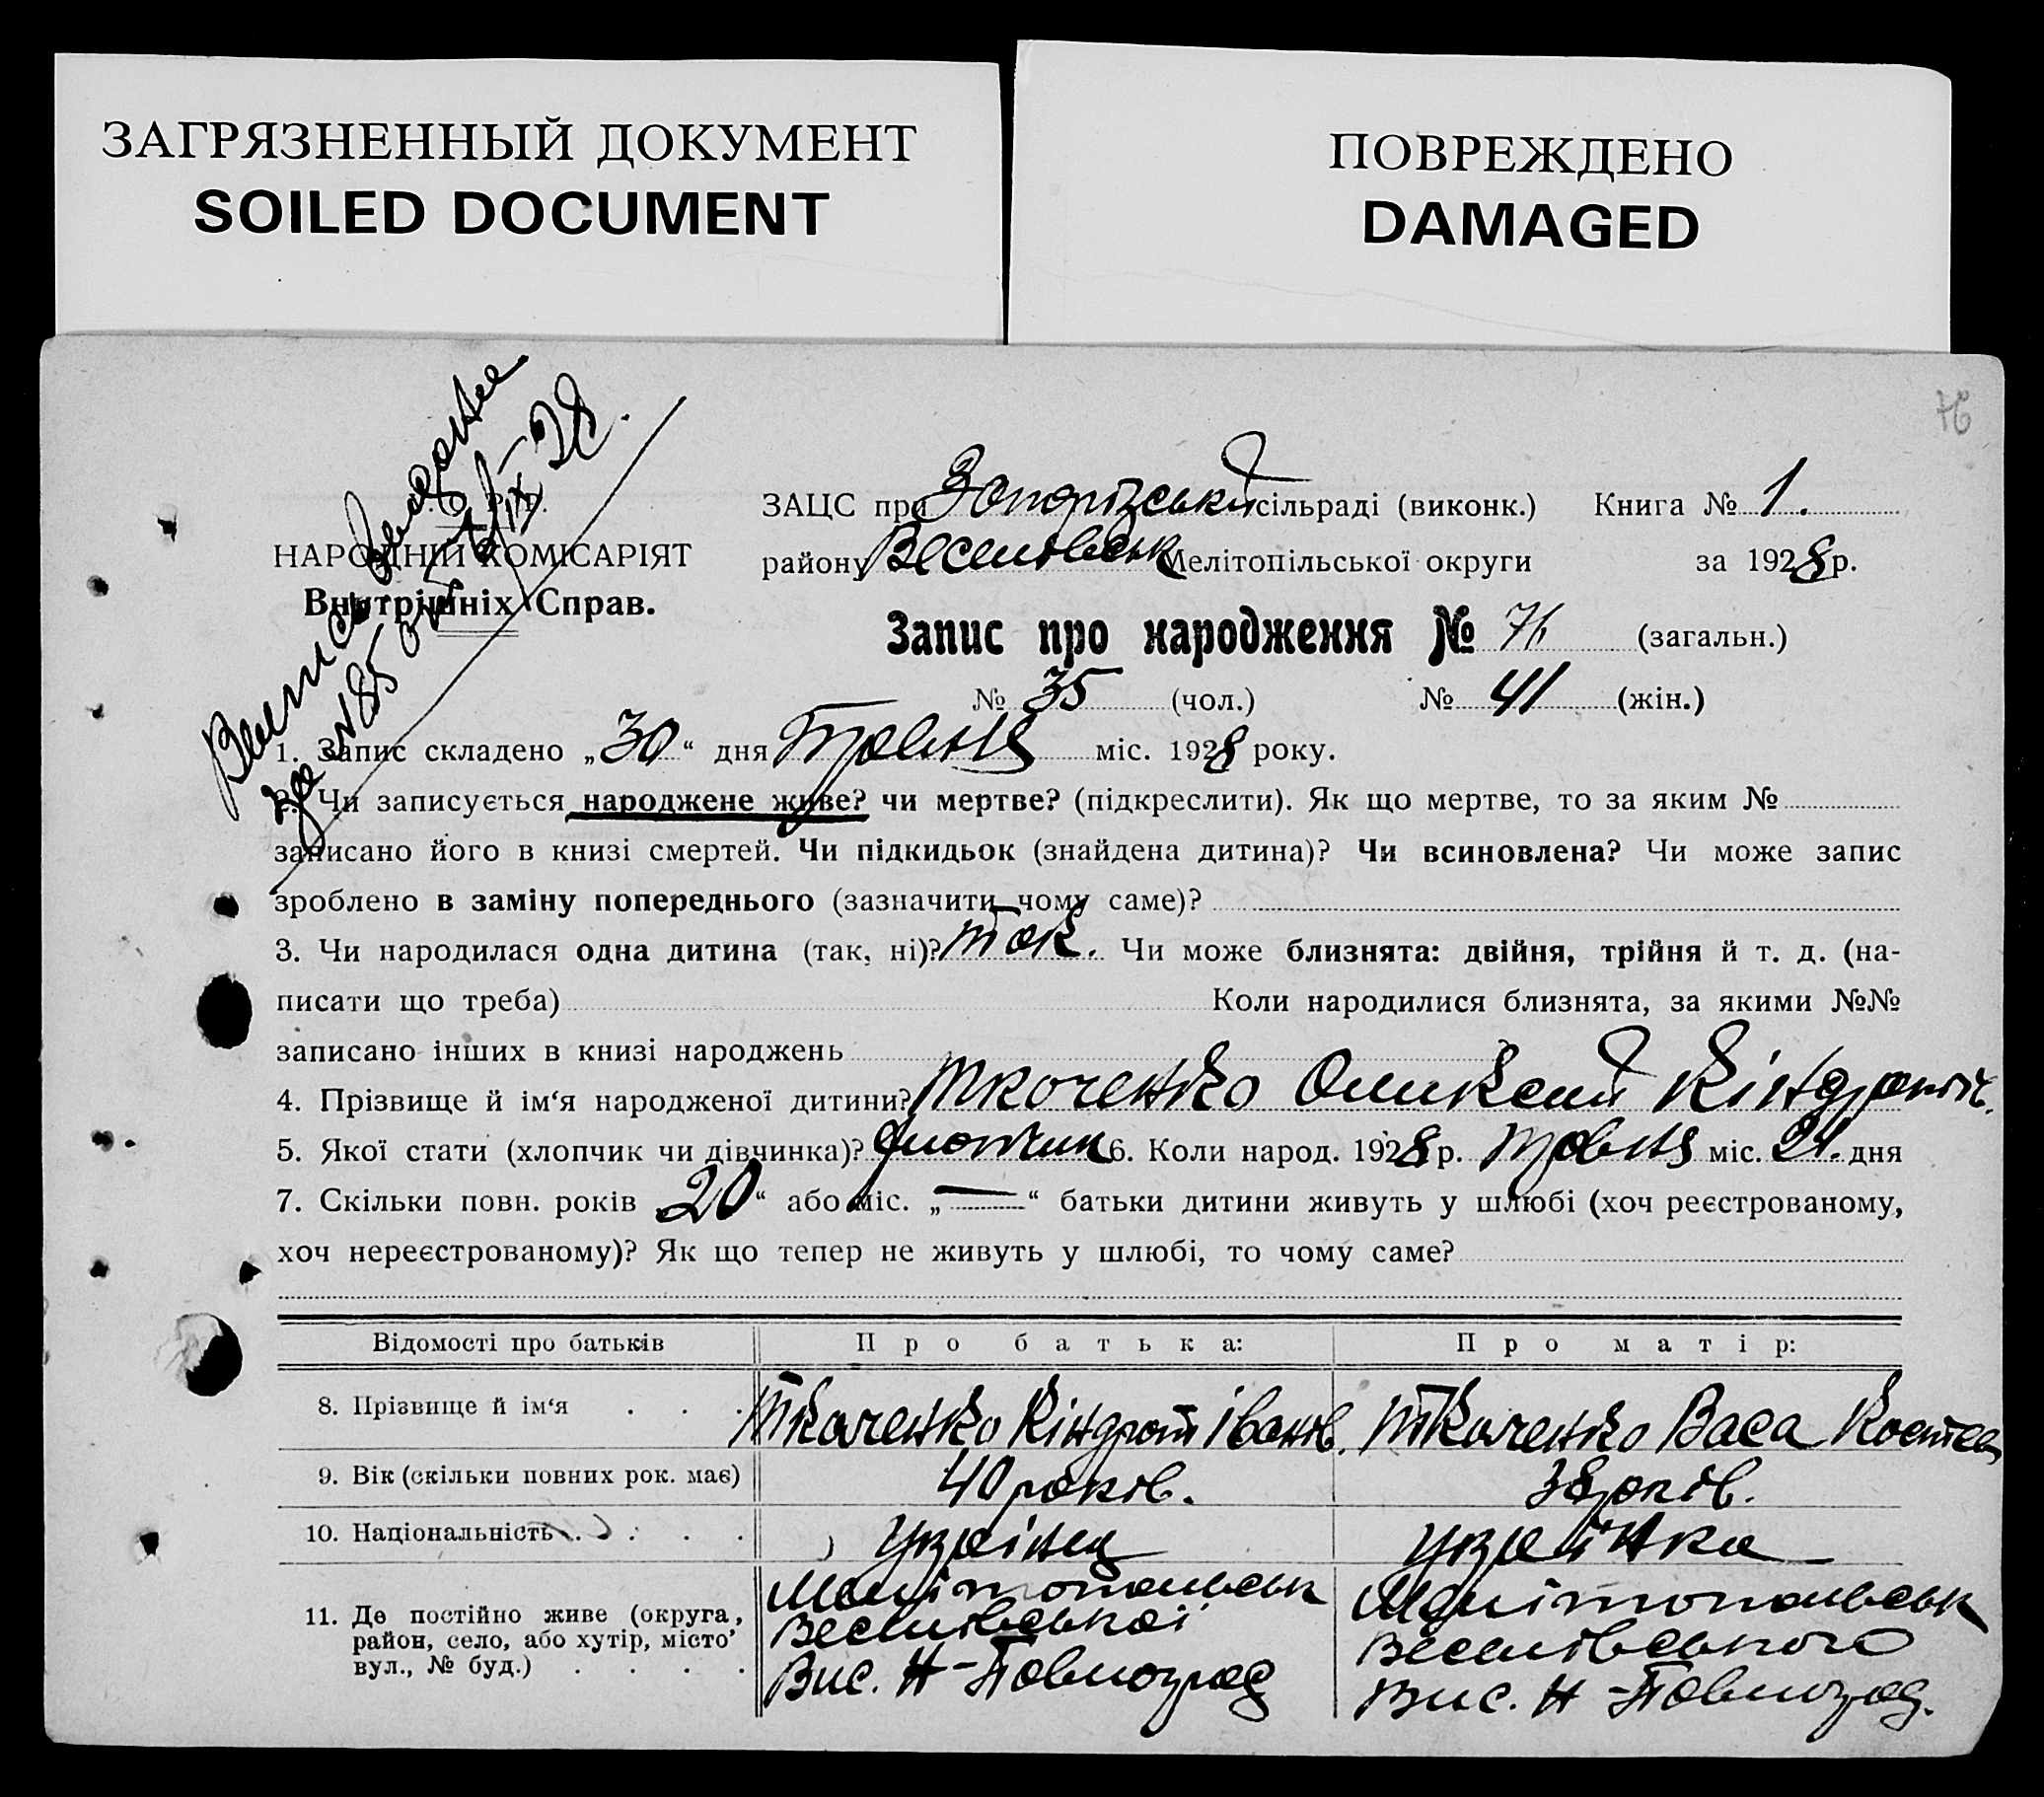 ЗАГРЯЗНЕННЫЙ ДОКУМЕНТ
SOILED DOCUMENT
ПОВРЕЖДЕНО
DAMAGED
76
Виписъ видана
за №85 5/IX-28.
Р.
НАРОДНІЙ КОМІСАРІЯТ
Внутрішніх Справ.
ЗАЦС при Запорізський сільраді (виконк.) Книга № 1.
району Веселівськ Мелітопільської округи за 1928 р.
Запис про народження № 76 (загальн.)
№ 35 (чол.) № 41 (жін.)
1. Запис складено „30“ дня Травня міс. 1928 року.
2. Чи записується народжене живе? чи мертве? (підкреслити). Як що мертве, то за яким №
записано його в книзі смертей. Чи підкидьок (знайдена дитина)? Чи всиновлена? Чи може запис
зроблено в заміну попереднього (зазначити чому саме)?
3. Чи народилася одна дитина (так, ні)? так. Чи може близнята: двійня, трійня й т. д. (на-
писати що треба) Коли народилися близнята, за якими №№
записано інших в книзі народжень
4. Прізвище й ім‘я народженої дитини? Ткаченко Оликсий Кіндратіч.
5. Якої стати (хлопчик чи дівчинка)? хлопчик 6. Коли народ. 1928 р. Травня міс. 21. дня
7. Скільки повн. років 20“ або міс. „—“ батьки дитини живуть у шлюбі (хоч реєстрованому,
хоч нереєстрованому)? Як що тепер не живуть у шлюбі, то чому саме?
Відомості про батьків Про батька: Про матір:
8. Прізвище й ім‘я . . . Ткаченко Кіндрат Іванів. Ткаченко Васа Костев
9. Вік (скільки повних рок. має) 40 років. 38 років.
10. Національність . . . . . Украінец Украінка
11. Де постійно живе (округа, район, село, або хутір, місто, вул., № буд.) . . . .
Мелітопольськ
Веселівськоі
Вис. Н-Павлоград
Мелітопольськ
Веселівського
Вис. Н-Павлоград.